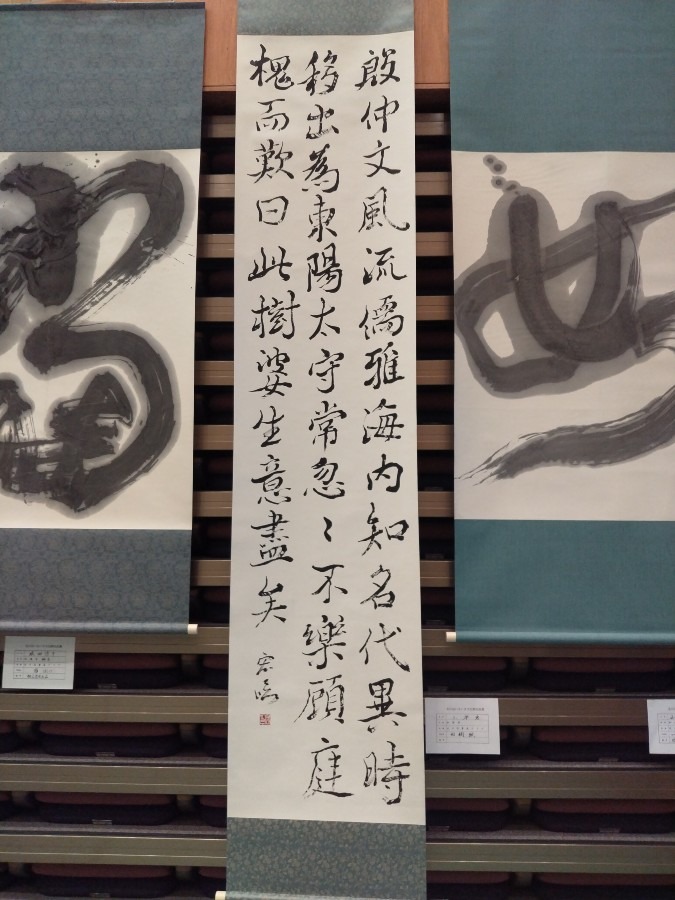 殷仲文風流儒雅海内知名代異時
移出為東陽太守常忽〻不樂顧庭
槐而歎曰此樹婆生意盡矣